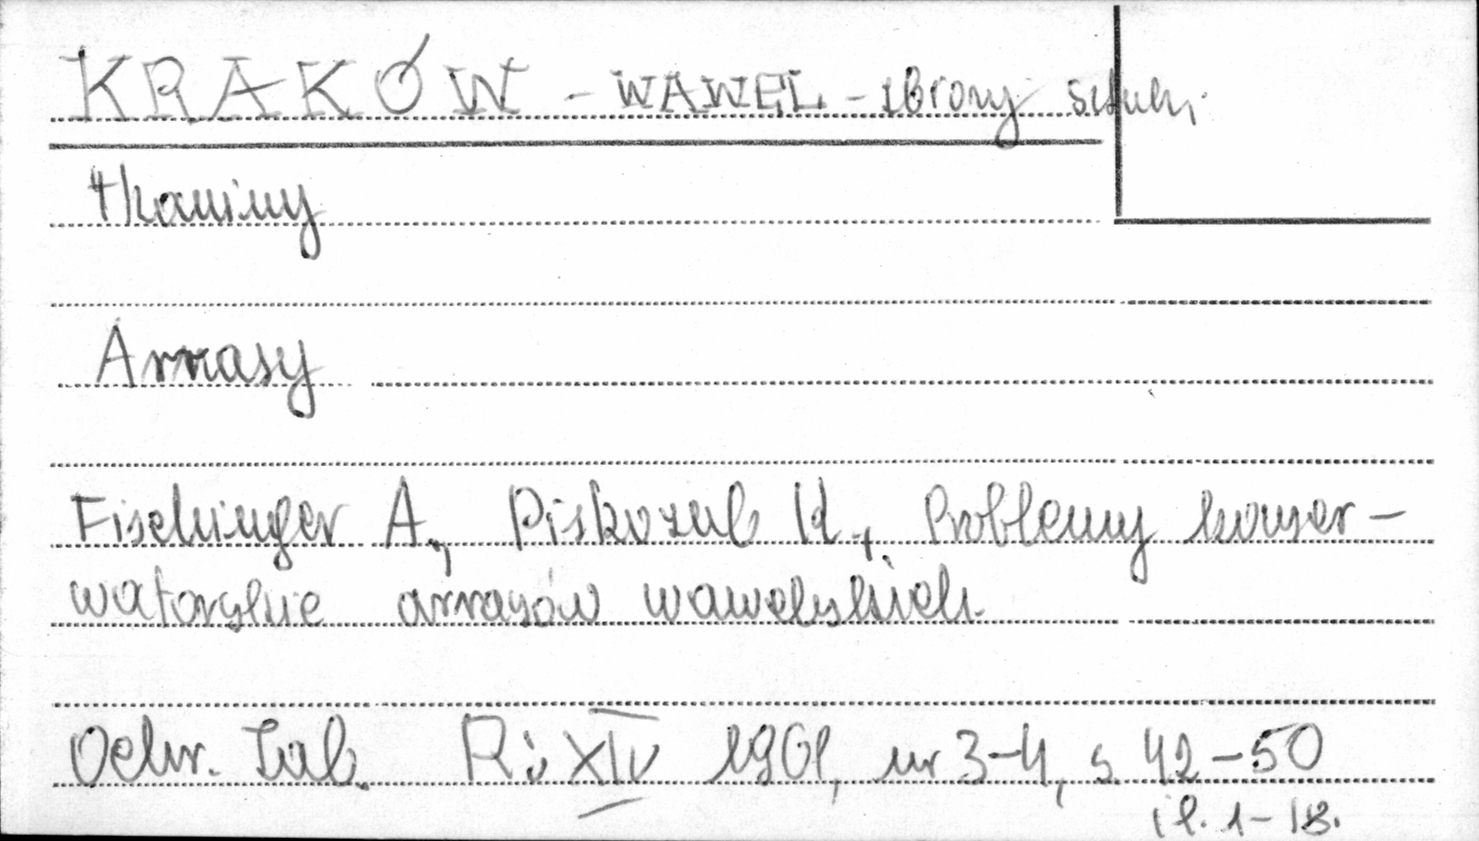 KRAKÓW - WAWEL - zbiory sztuki
tkaniny
Arrasy
Fischinger A., Piskozub H., Problemy konser-
watorskie arrasów wawelskich.
Ochr. Zab. R. XIV 1961, nr 3-4, s. 42-50
il. 1-18.